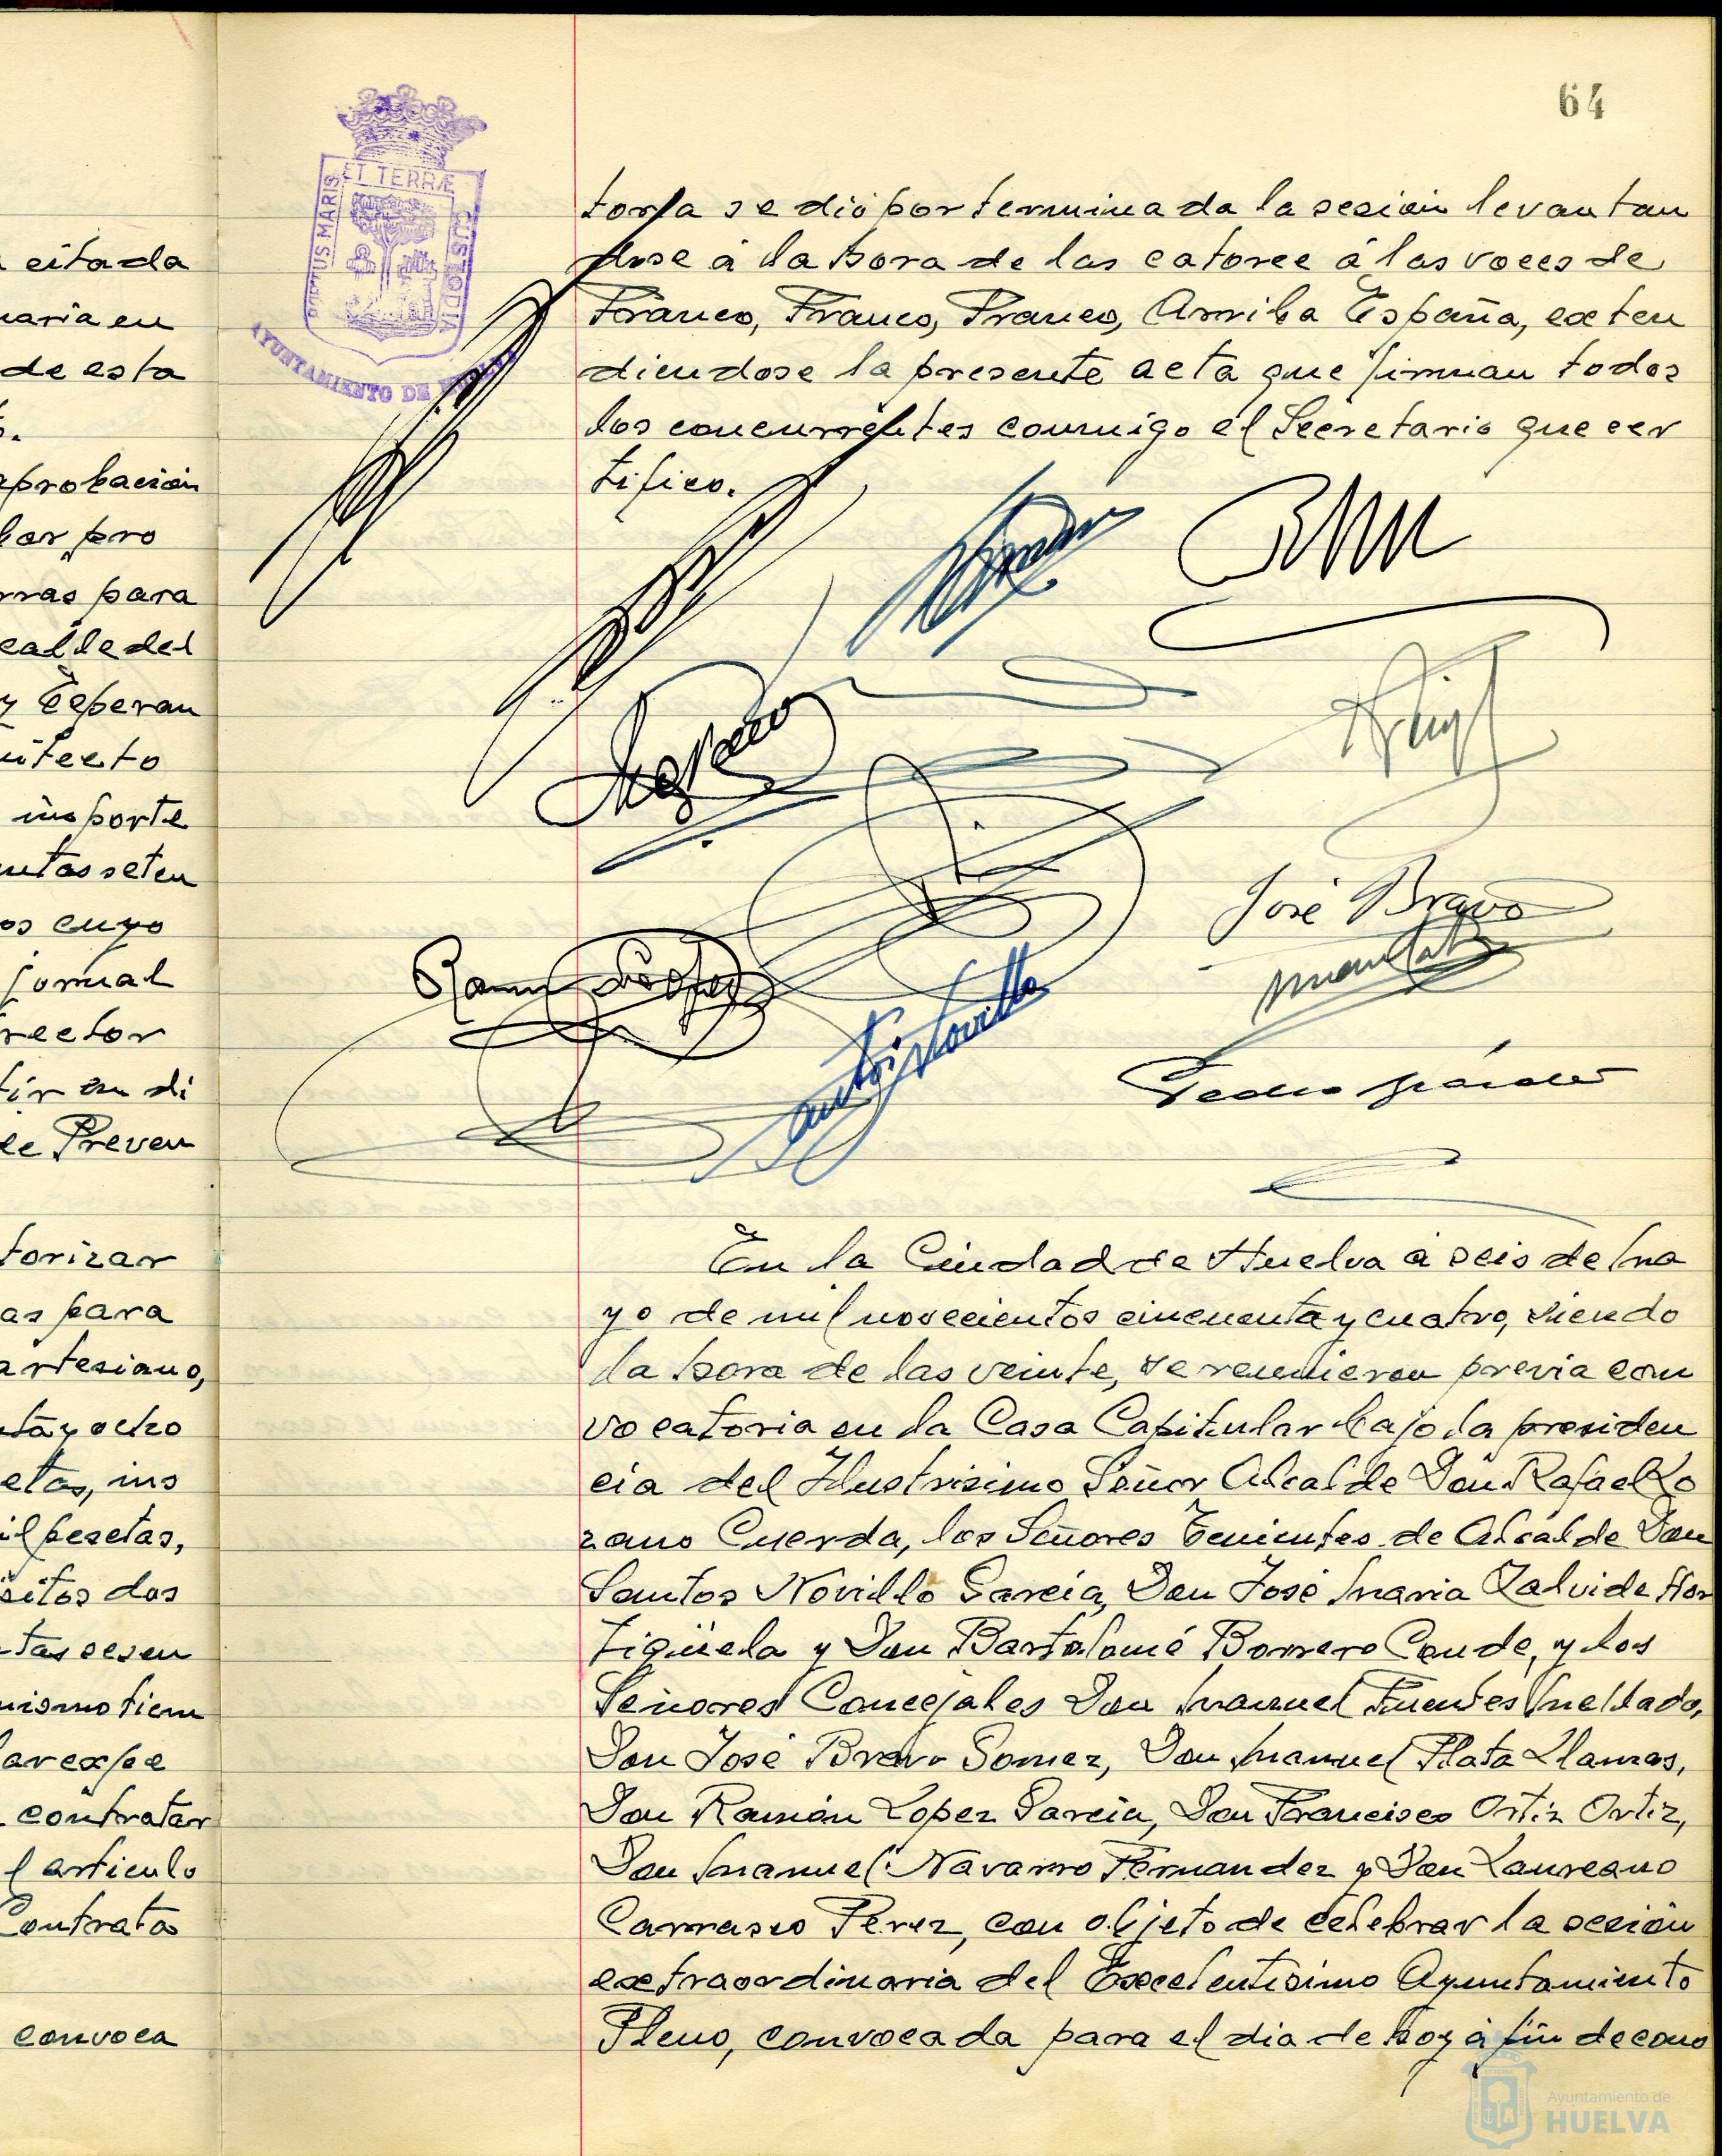 64
PORTUS MARIS
ET TERRÆ
CUSTODIA
AYUNTAMIENTO DE
citada
naria en
de esta
aprobacion
lar pro
rras para
calde del
y Esperan
uitecto
importe
entas seten
os cuyo
jornal
rector
tir en di
de Preven
torizar
as para
artesiano,
nta y ocho
etas, ins
il pesetas,
sitos dos
tas sesen
mismo tiem
lar expe
contratar
l articulo
Contratas
convoca
toria se dió por terminada la sesion levantan
dose á la hora de las catorce á las voces de
Franco, Franco, Franco, Arriba España, exten
diendose la presente acta que firman todos
los concurrentes conmigo el Secretario que cer
tifico.
José Bravo
Ramon Lopez
En la Ciudad de Huelva á seis de ma
yo de mil novecientos cincuenta y cuatro, siendo
la hora de las veinte, se reunieron previa con
vocatoria en la Casa Capitular bajo la presiden
cia del Ilustrisimo Señor Alcalde Don Rafael Lo
zano Cuerda, los Señores Tenientes de Alcalde Don
Santos Novillo Garcia, Don José Maria Zalvide Hor
tigüela y Don Bartolomé Borrero Conde, y los
Señores Concejales Don Manuel Fuentes Mellado,
Don José Bravo Gomez, Don Manuel Plata Llamas,
Don Ramón Lopez Garcia, Don Francisco Ortiz Ortiz,
Don Manuel Navarro Fernandez y Don Laureano
Carrasco Perez, con objeto de celebrar la sesion
extraordinaria del Excelentisimo Ayuntamiento
Pleno, convocada para el dia de hoy á fin de cono
Ayuntamiento de
HUELVA